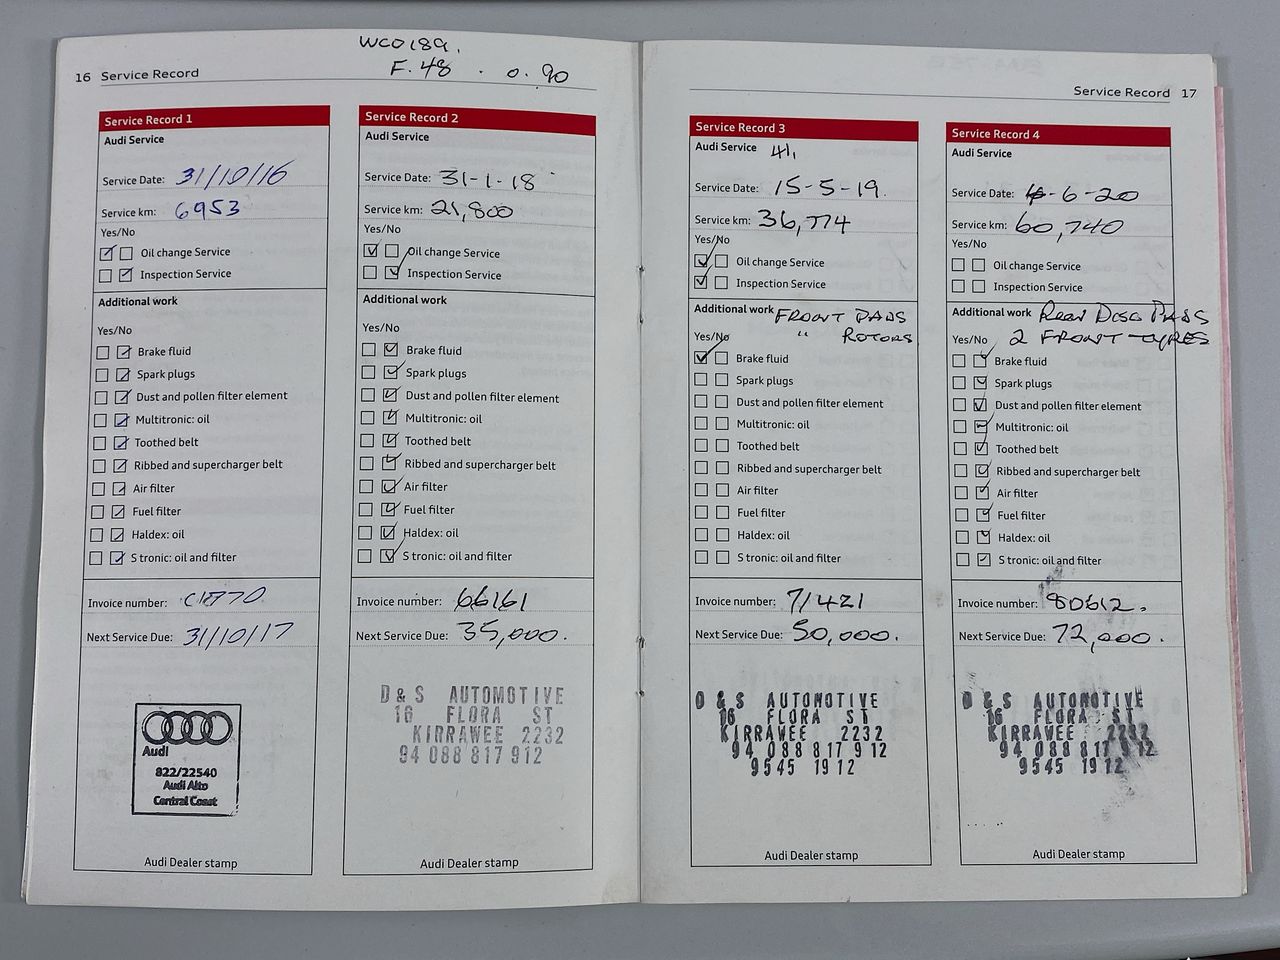 WCO189.
F. 48 . 0. 90
16 Service Record
Service Record 1
Audi Service
Service Date: 31/10/16
Service km: 6953
Yes/No
Oil change Service
Inspection Service
Additional work
Yes/No
Brake fluid
Spark plugs
Dust and pollen filter element
Multitronic: oil
Toothed belt
Ribbed and supercharger belt
Air filter
Fuel filter
Haldex: oil
S tronic: oil and filter
Invoice number:
Next Service Due: 31/10/17
Audi
822/22540
Audi Alto
Central Coast
Audi Dealer stamp
Service Record 2
Audi Service
Service Date: 31-1-18
Service km: 21,800
Yes/No
Oil change Service
Inspection Service
Additional work
Yes/No
Brake fluid
Spark plugs
Dust and pollen filter element
Multitronic: oil
Toothed belt
Ribbed and supercharger belt
Air filter
Fuel filter
Haldex: oil
S tronic: oil and filter
Invoice number: 66161
Next Service Due: 35,000.
D & S AUTOMOTIVE
16 FLORA ST
KIRRAWEE 2232
94 088 817 912
Audi Dealer stamp
Service Record 17
Service Record 3
Audi Service 41,
Service Date: 15-5-19.
Service km: 36,774
Yes/No
Oil change Service
Inspection Service
Additional work FRONT PADS
" ROTORS
Yes/No
Brake fluid
Spark plugs
Dust and pollen filter element
Multitronic: oil
Toothed belt
Ribbed and supercharger belt
Air filter
Fuel filter
Haldex: oil
S tronic: oil and filter
Invoice number: 71421
Next Service Due: 50,000.
D & S AUTOMOTIVE
16 FLORA ST
KIRRAWEE 2232
94 088 817 912
9545 1912
Audi Dealer stamp
Service Record 4
Audi Service
Service Date: -6-20
Service km: 60,740
Yes/No
Oil change Service
Inspection Service
Additional work Rear Disc PADS
Yes/No 2 FRONT TYRES
Brake fluid
Spark plugs
Dust and pollen filter element
Multitronic: oil
Toothed belt
Ribbed and supercharger belt
Air filter
Fuel filter
Haldex: oil
S tronic: oil and filter
Invoice number: 80612.
Next Service Due: 72,000.
D & S AUTOMOTIVE
16 FLORA ST
KIRRAWEE 2232
94 088 817 912
9545 1912
Audi Dealer stamp